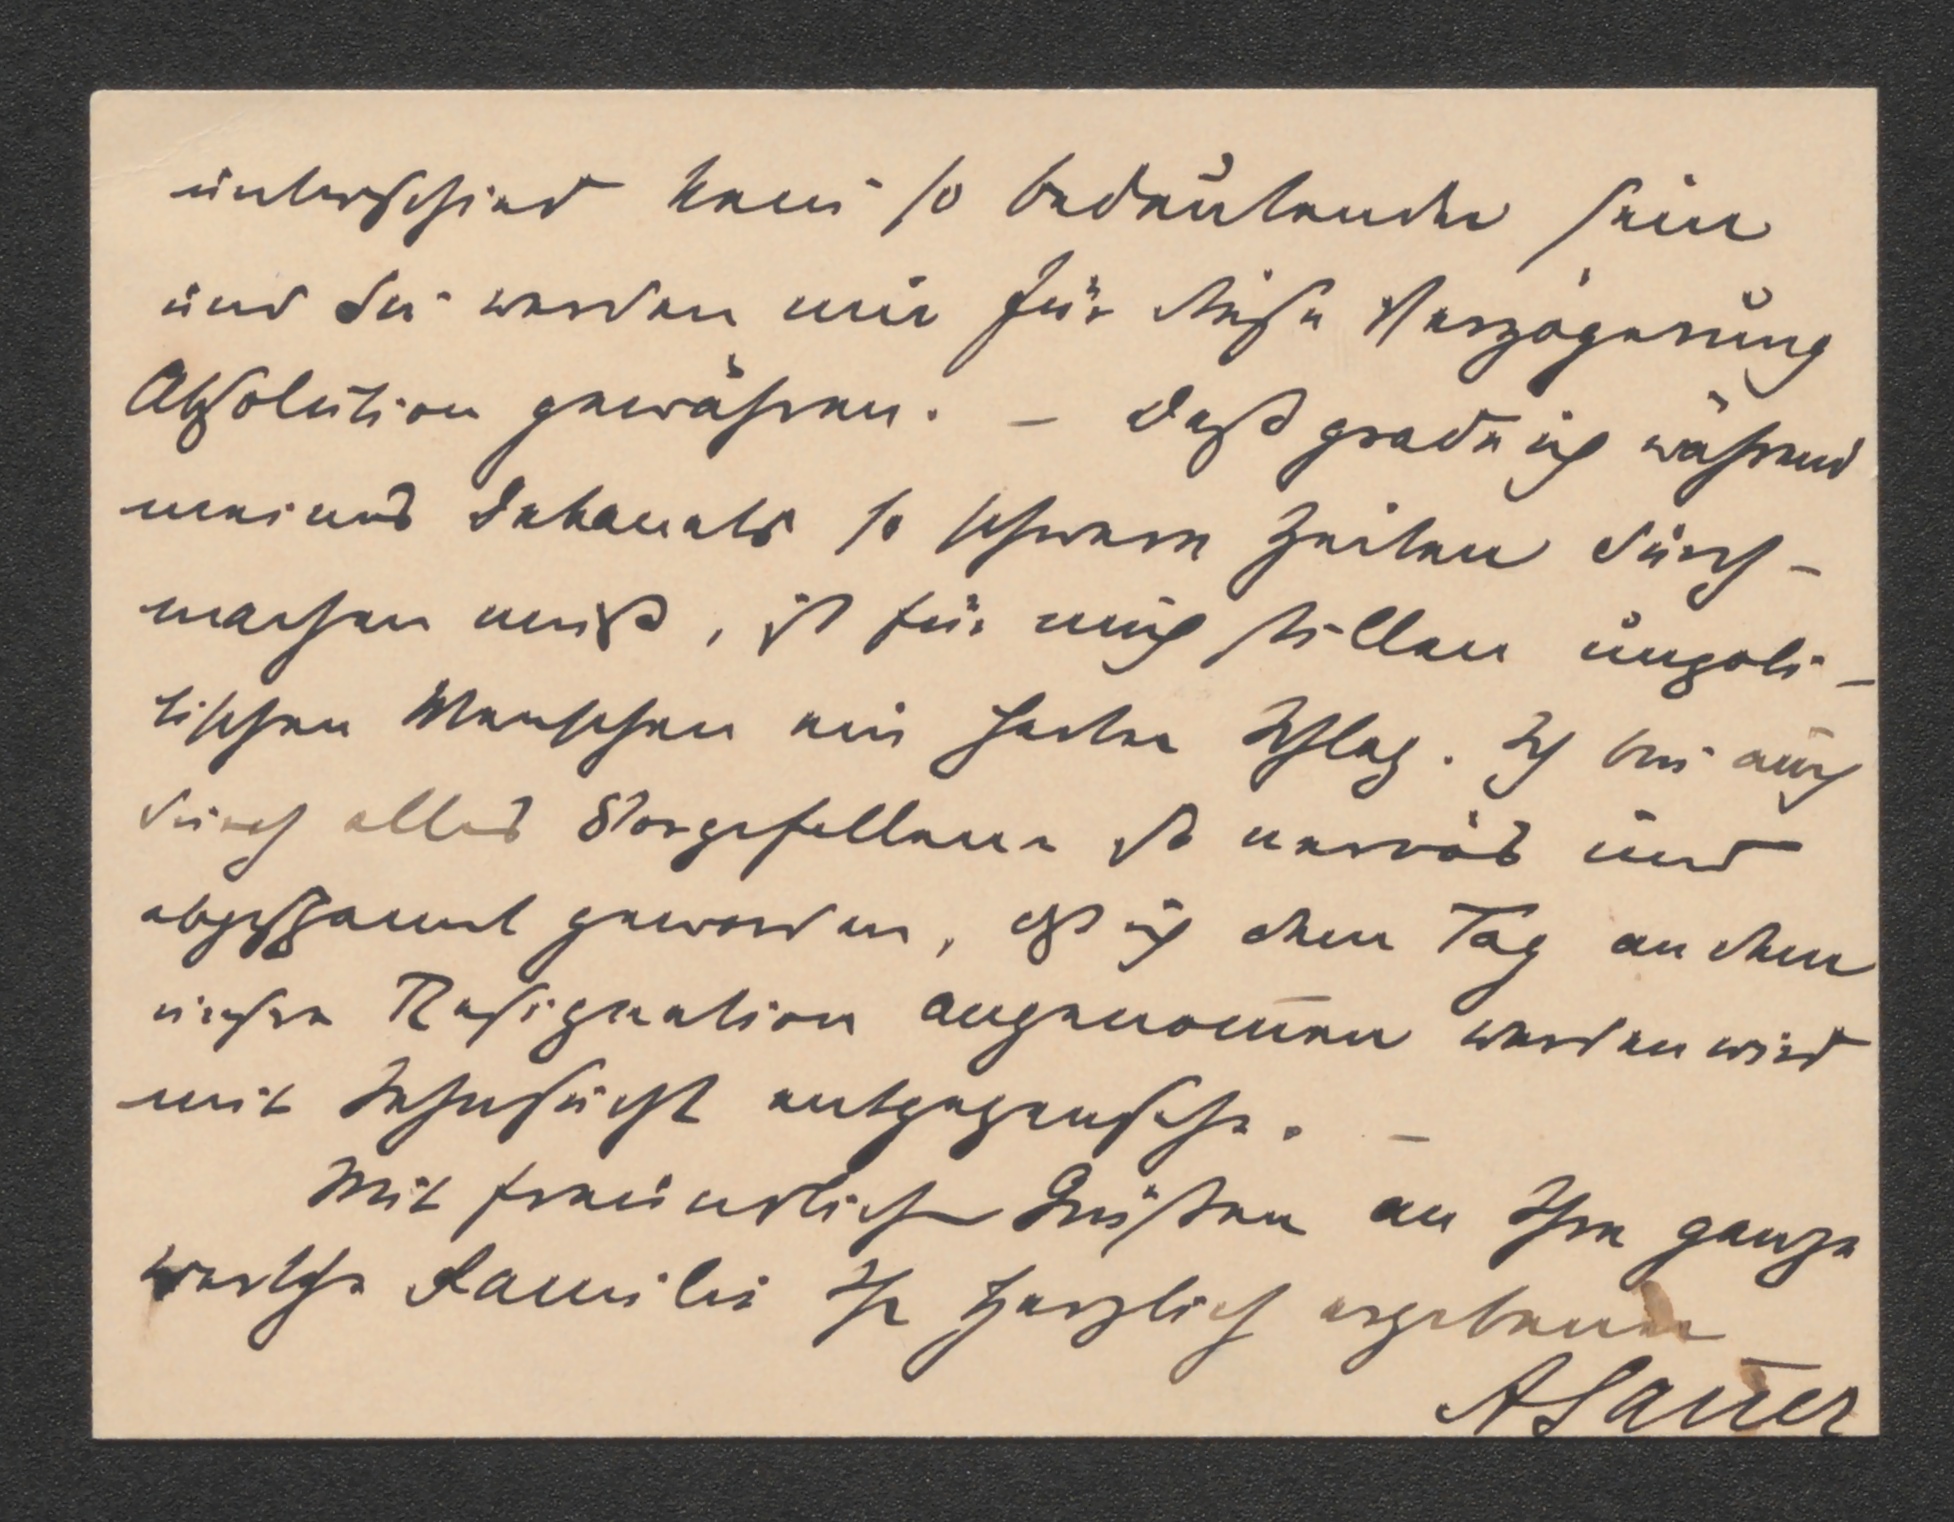 unterschied kein so bedeutender sein
und Sie werden mir für diese Verzögerung
Absolution gewähren. – Daß grade ich während
meines Dekanats so schwere Zeiten durch-
machen muß, ist für mich stillen unpoli-
tischen Menschen ein harter Schlag. Ich bin auch
durch alles Vorgefallene so nervös und
abgespannt geworden, daß ich dem Tag an dem
unsere Resignation angenom̄en werden wird
mit Sehnsucht entgegensehe. –
Mit freundlichen Grüßen an Ihre ganze
werthe Familie Ihr herzlich ergebener
ASauer